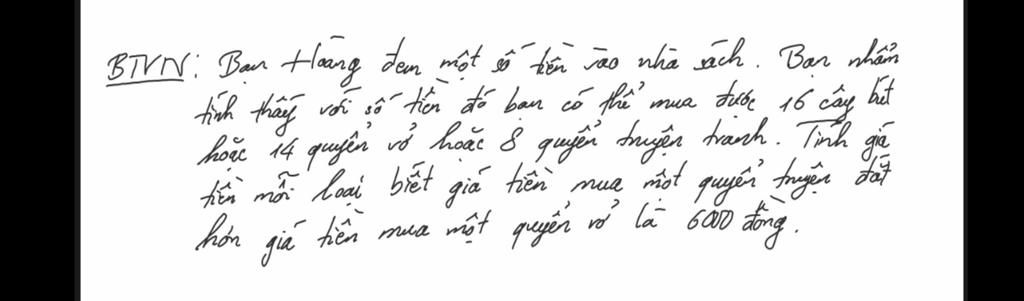 BTVN: Bạn Hoàng đem một số tiền vào nhà sách. Bạn nhẩm
tính thấy với số tiền đó bạn có thể mua được 16 cây bút
hoặc 14 quyển vở hoặc 8 quyển truyện tranh. Tính giá
tiền mỗi loại biết giá tiền mua một quyển truyện đắt
hơn giá tiền mua một quyển vở là 6000 đồng.